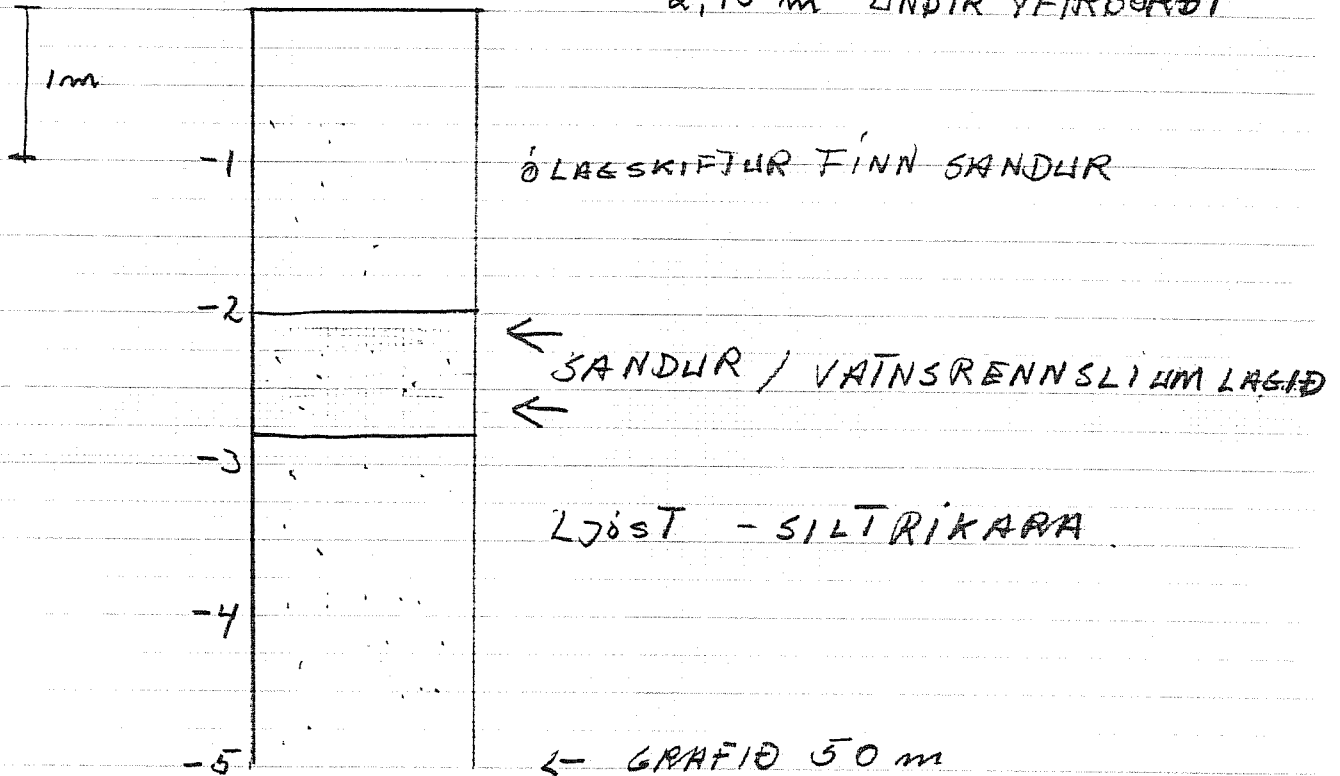 m UNDIR YFIRBORÐI
1m
-1 ÓLAGSKIFTUR FÍNN SANDUR
-2
← SANDUR / VATNSRENNSLI UM LAGIÐ
←
-3
LJÓST - SILTRÍKARA
-4
-5 ← GRAFIÐ 50 m